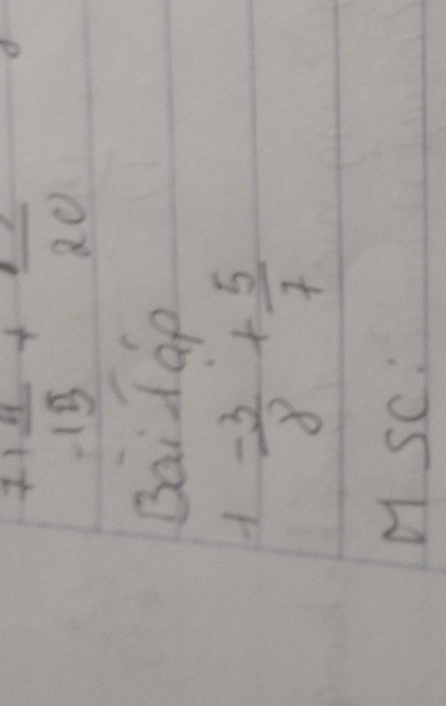 +
-15 20
Bài tập
1 -3/8 + 5/7
MSC: